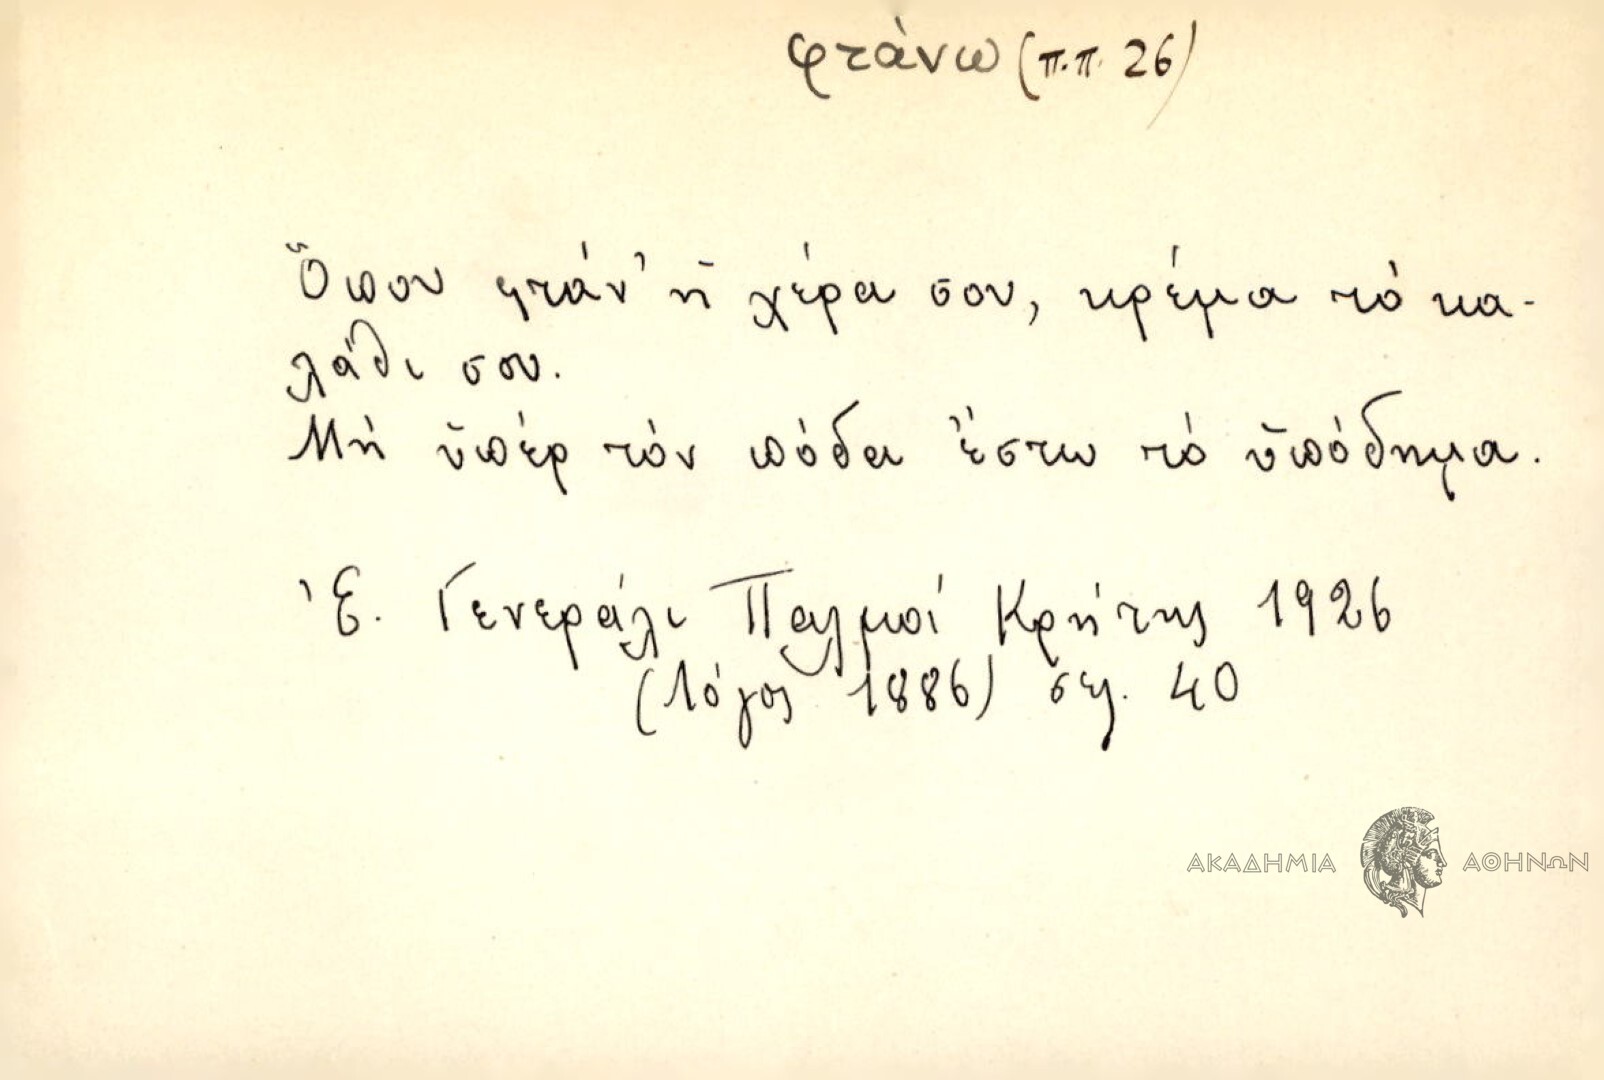 φτάνω (π.π. 26)
Ὅπου φτάν' ἡ χέρα σου, κρέμα τό κα-
λάθι σου.
Μή ὑπέρ τόν πόδα ἔστω τό ὑπόδημα.
Ἐ. Γενεράλι Παλμοί Κρήτης 1926
(Λόγος 1886) σελ. 40
ΑΚΑΔΗΜΙΑ ΑΘΗΝΩΝ